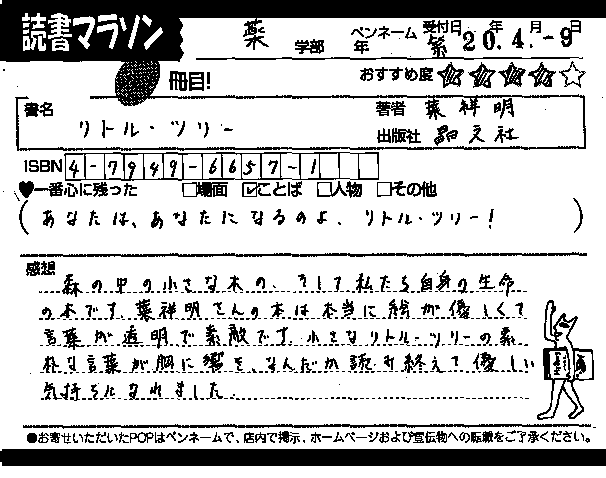 読書マラソン
薬 学部 年
ペンネーム 紫
受付日 20年 4月 -9日
冊目!
おすすめ度 ★★★★☆
書名 リトル・ツリー
著者 葉祥明
出版社 晶文社
ISBN 4-7949-6657-1
♥一番心に残った □場面 ☑ことば □人物 □その他
(あなたは、あなたになるのよ、リトル・ツリー!)
感想
森の中の小さな木の、そして私たち自身の生命
の本です。葉祥明さんの本は本当に絵が優しくて
言葉が透明で素敵です。小さなリトル・ツリーの素
朴な言葉が胸に響き、なんだか読み終えて優しい
気持ちになれました。
●お寄せいただいたPOPはペンネームで、店内で掲示、ホームページおよび宣伝物への転載をご了承ください。